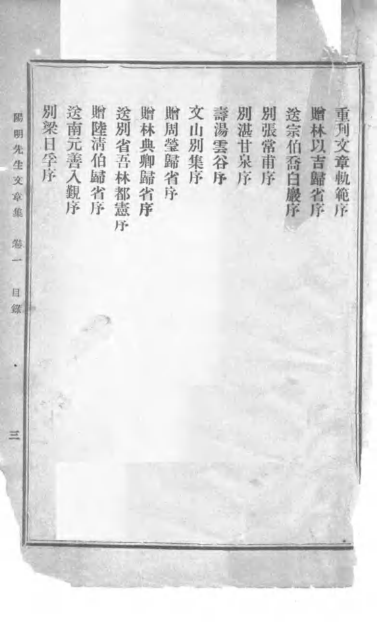 重刋文章軌範序
贈林以吉歸省序
送宗伯喬白巖序
別張常甫序
別湛甘泉序
壽湯雲谷序
文山別集序
贈周瑩歸省序
贈林典卿歸省序
送別省吾林都憲序
贈陸清伯歸省序
送南元善入覲序
別梁日孚序
陽明先生文章集 卷一 目錄 三